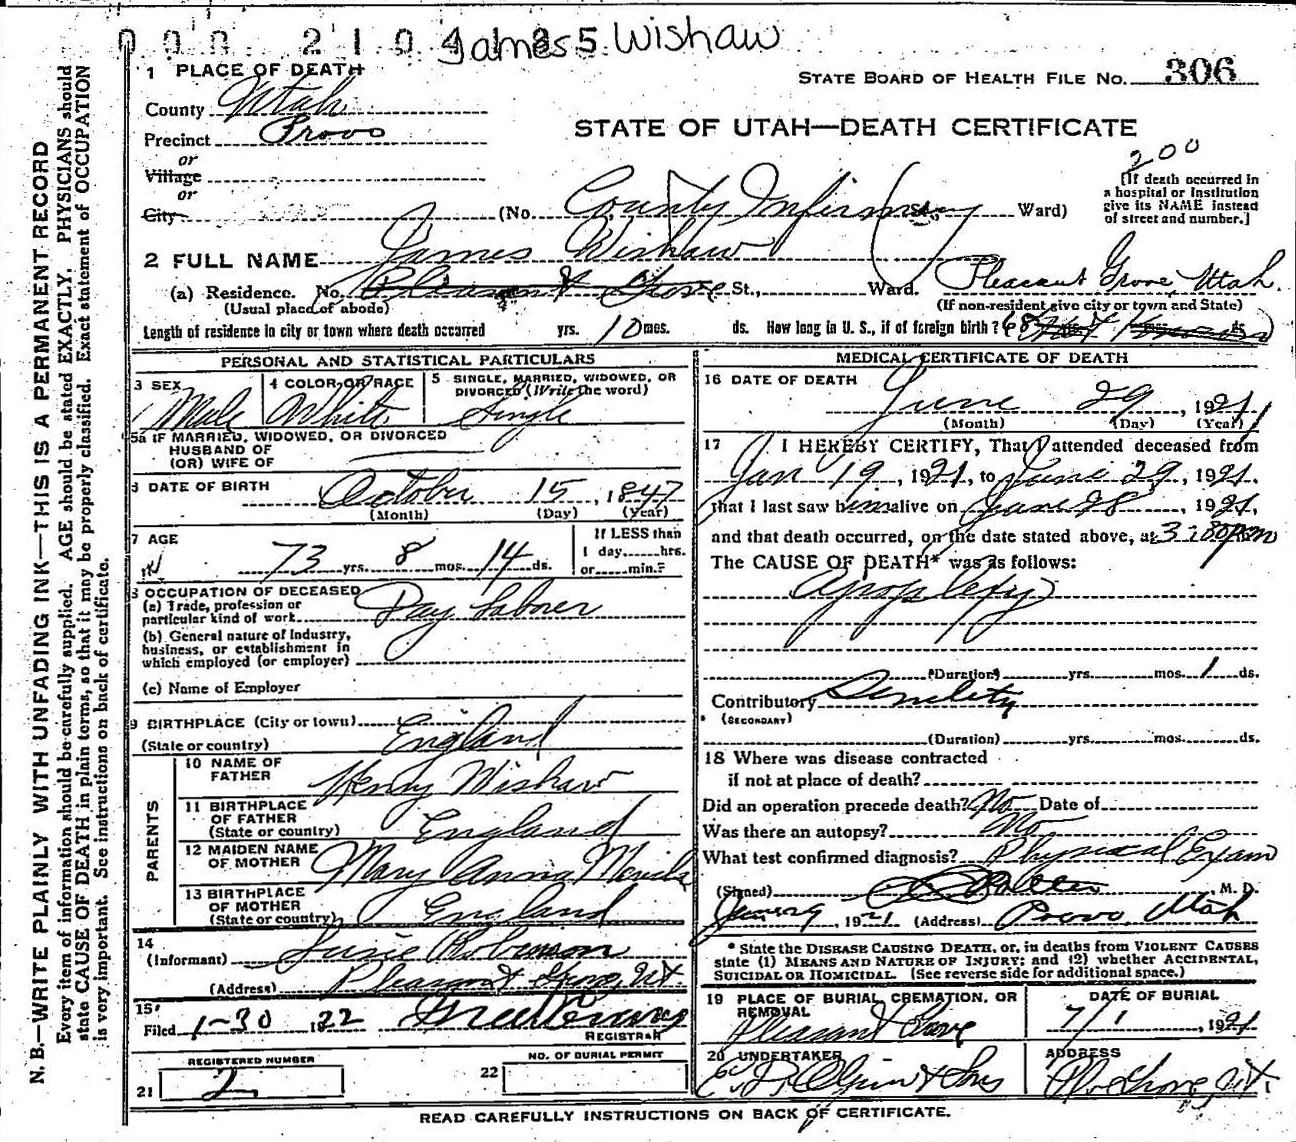 000 2104 35
James Wishaw
1 PLACE OF DEATH
STATE BOARD OF HEALTH FILE NO. 306
County Utah
STATE OF UTAH—DEATH CERTIFICATE
Precinct Provo
or
200
Village
[If death occurred in
a hospital or institution
give its NAME instead
of street and number.]
or
City (No. County Infirmary St., Ward)
2 FULL NAME James Wishaw
(a) Residence. No. Pleasant Grove St., Ward. Pleasant Grove, Utah.
(Usual place of abode) (If non-resident give city or town and State)
Length of residence in city or town where death occurred yrs. 10 mos. ds. How long in U. S., if of foreign birth? 68
PERSONAL AND STATISTICAL PARTICULARS
3 SEX 4 COLOR OR RACE 5 SINGLE, MARRIED, WIDOWED, OR
DIVORCED (Write the word)
Male White Single
5a IF MARRIED, WIDOWED, OR DIVORCED
HUSBAND OF
(OR) WIFE OF
6 DATE OF BIRTH October 15, 1847
(Month) (Day) (Year)
7 AGE 73 yrs. 8 mos. 14 ds.
If LESS than
1 day......hrs.
or......min.?
8 OCCUPATION OF DECEASED
(a) Trade, profession or
particular kind of work Day Laborer
(b) General nature of industry,
business, or establishment in
which employed (or employer)
(c) Name of Employer
9 BIRTHPLACE (City or town)
(State or country) England
PARENTS
10 NAME OF
FATHER Henry Wishaw
11 BIRTHPLACE
OF FATHER
(State or country) England
12 MAIDEN NAME
OF MOTHER Mary Anna
13 BIRTHPLACE
OF MOTHER
(State or country) England
14
(Informant) Susie Robinson
(Address) Pleasant Grove, Ut.
15
Filed 1-30 1922
REGISTRAR
REGISTERED NUMBER NO. OF BURIAL PERMIT
21 2 22
MEDICAL CERTIFICATE OF DEATH
16 DATE OF DEATH
June 29, 1921
(Month) (Day) (Year)
17 I HEREBY CERTIFY, That I attended deceased from
Jan 19, 1921, to June 29, 1921.
that I last saw him alive on June 28, 1921.
and that death occurred, on the date stated above, at 3:30 pm
The CAUSE OF DEATH* was as follows:
Apoplexy
(Duration) yrs. mos. 1 ds.
Contributory Senility
(SECONDARY)
(Duration) yrs. mos. ds.
18 Where was disease contracted
if not at place of death?
Did an operation precede death? No Date of
Was there an autopsy? No
What test confirmed diagnosis? Physical Exam
(Signed) M. D.
1921 (Address) Provo, Utah
* State the DISEASE CAUSING DEATH, or, in deaths from VIOLENT CAUSES
state (1) MEANS AND NATURE OF INJURY; and (2) whether ACCIDENTAL,
SUICIDAL OR HOMICIDAL. (See reverse side for additional space.)
19 PLACE OF BURIAL, CREMATION, OR
REMOVAL
Pleasant Grove
DATE OF BURIAL
7/1, 1921
20 UNDERTAKER
& Sons
ADDRESS
Pl. Grove, Ut.
READ CAREFULLY INSTRUCTIONS ON BACK OF CERTIFICATE.
N. B.—WRITE PLAINLY WITH UNFADING INK—THIS IS A PERMANENT RECORD
Every item of information should be carefully supplied. AGE should be stated EXACTLY. PHYSICIANS should
state CAUSE OF DEATH in plain terms, so that it may be properly classified. Exact statement of OCCUPATION
is very important. See instructions on back of certificate.